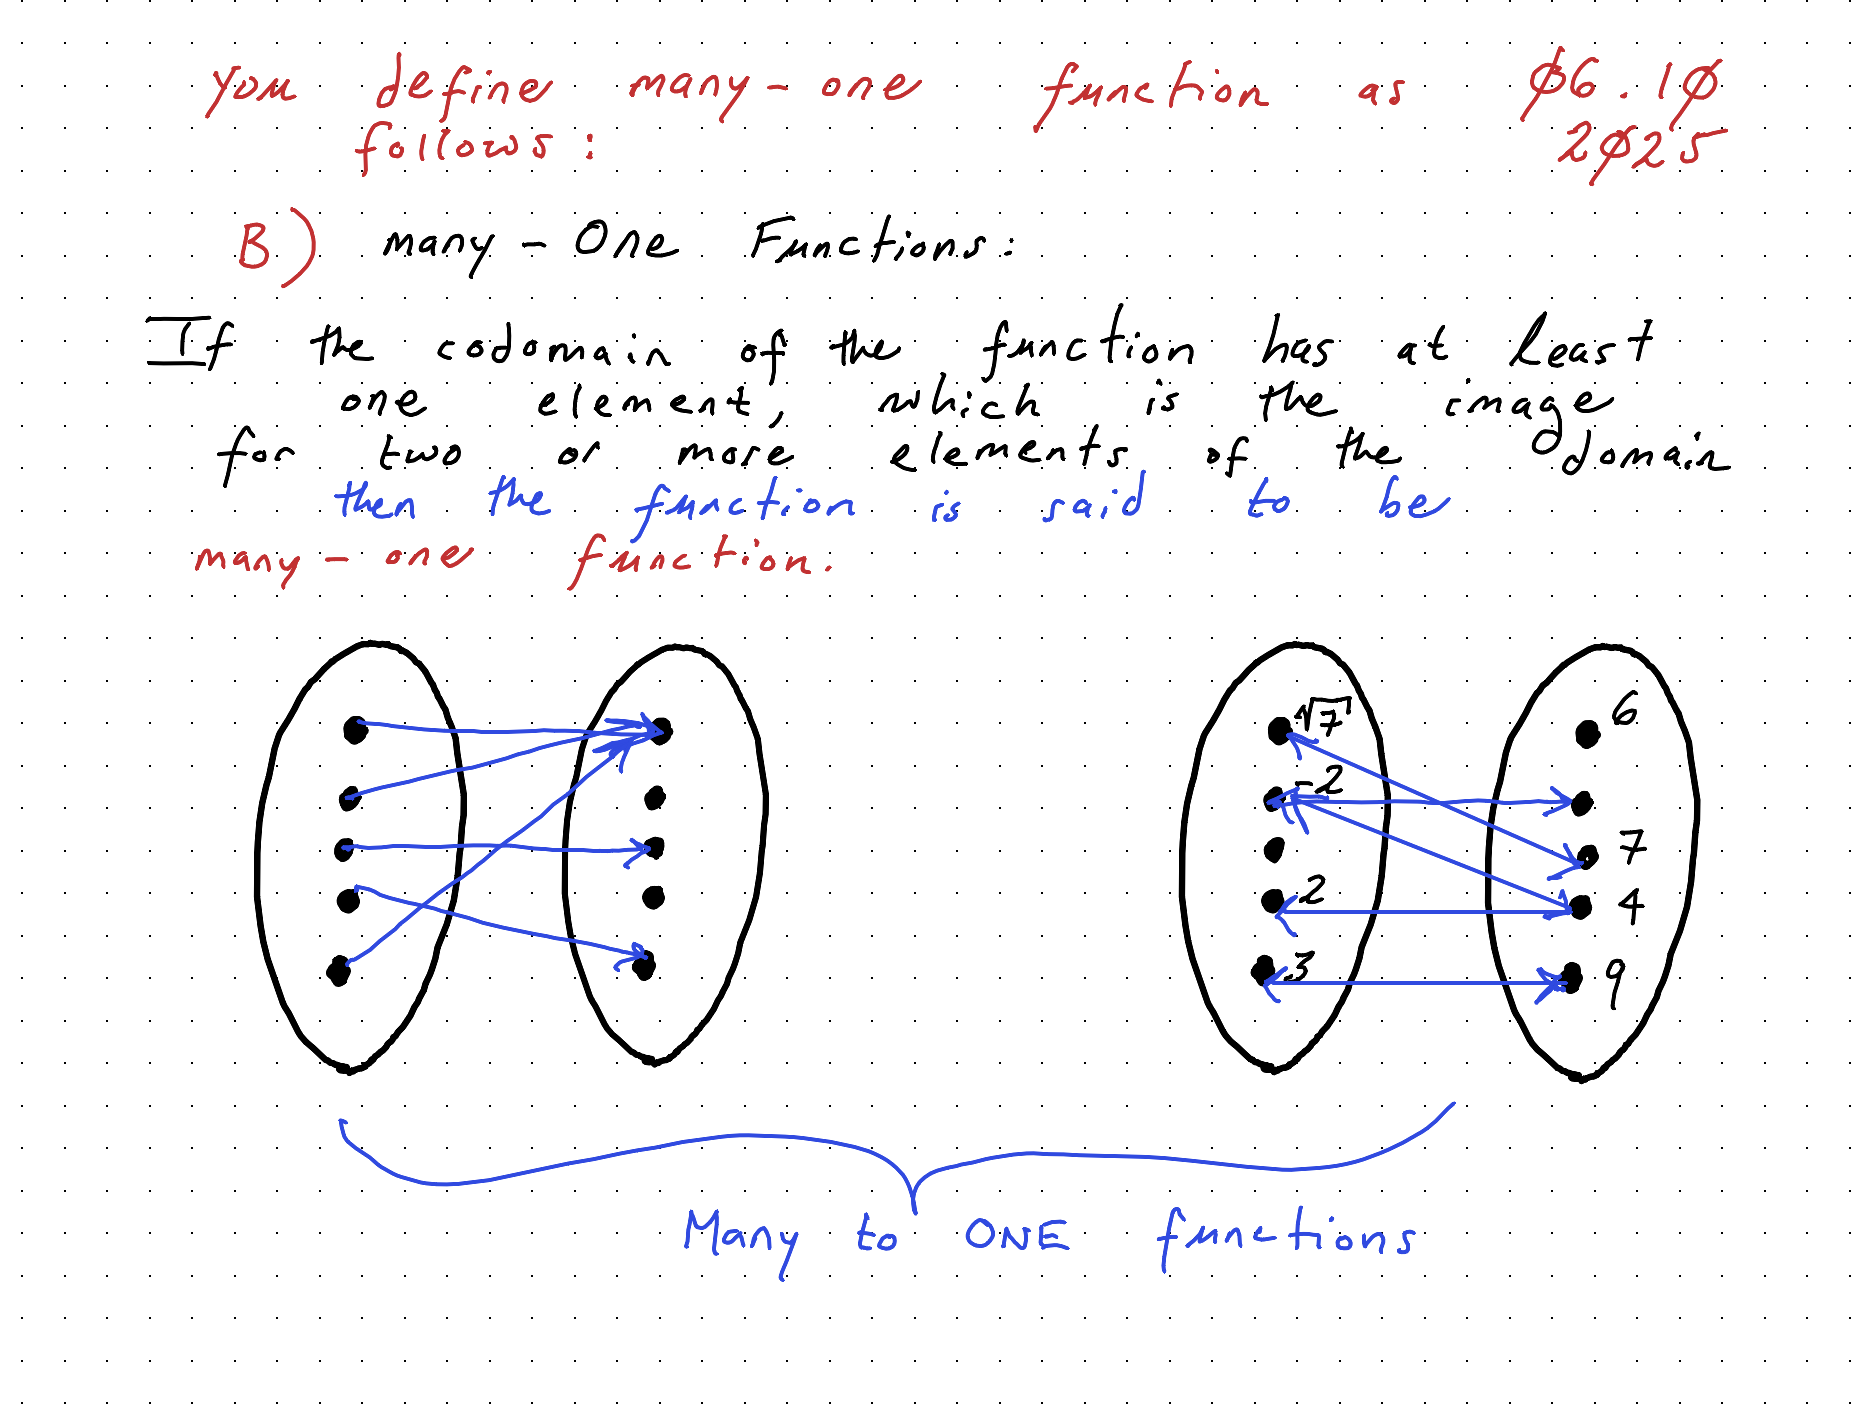 you define many-one function as 06.10
follows: 2025
B.) many - One Functions:
If the codomain of the function has at least
one element, which is the image
for two or more elements of the domain
then the function is said to be
many-one function.
√7 6
-2
7
2 4
3 9
Many to ONE functions